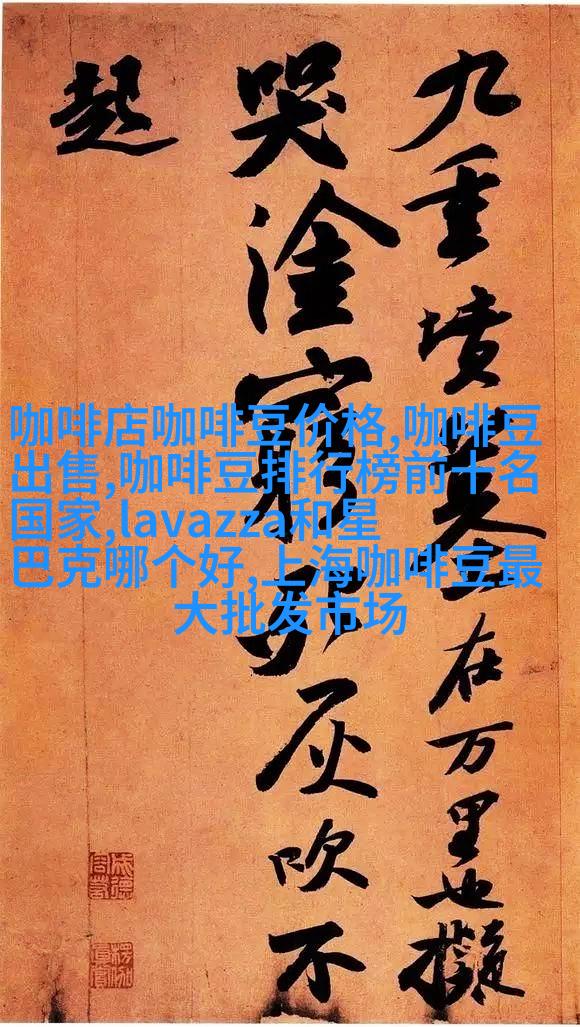 九重墳墓在万里也擬
哭塗窮死灰吹不
起
咖啡店咖啡豆价格,咖啡豆
出售,咖啡豆排行榜前十名
国家,lavazza和星
巴克哪个好,上海咖啡豆最
大批发市场